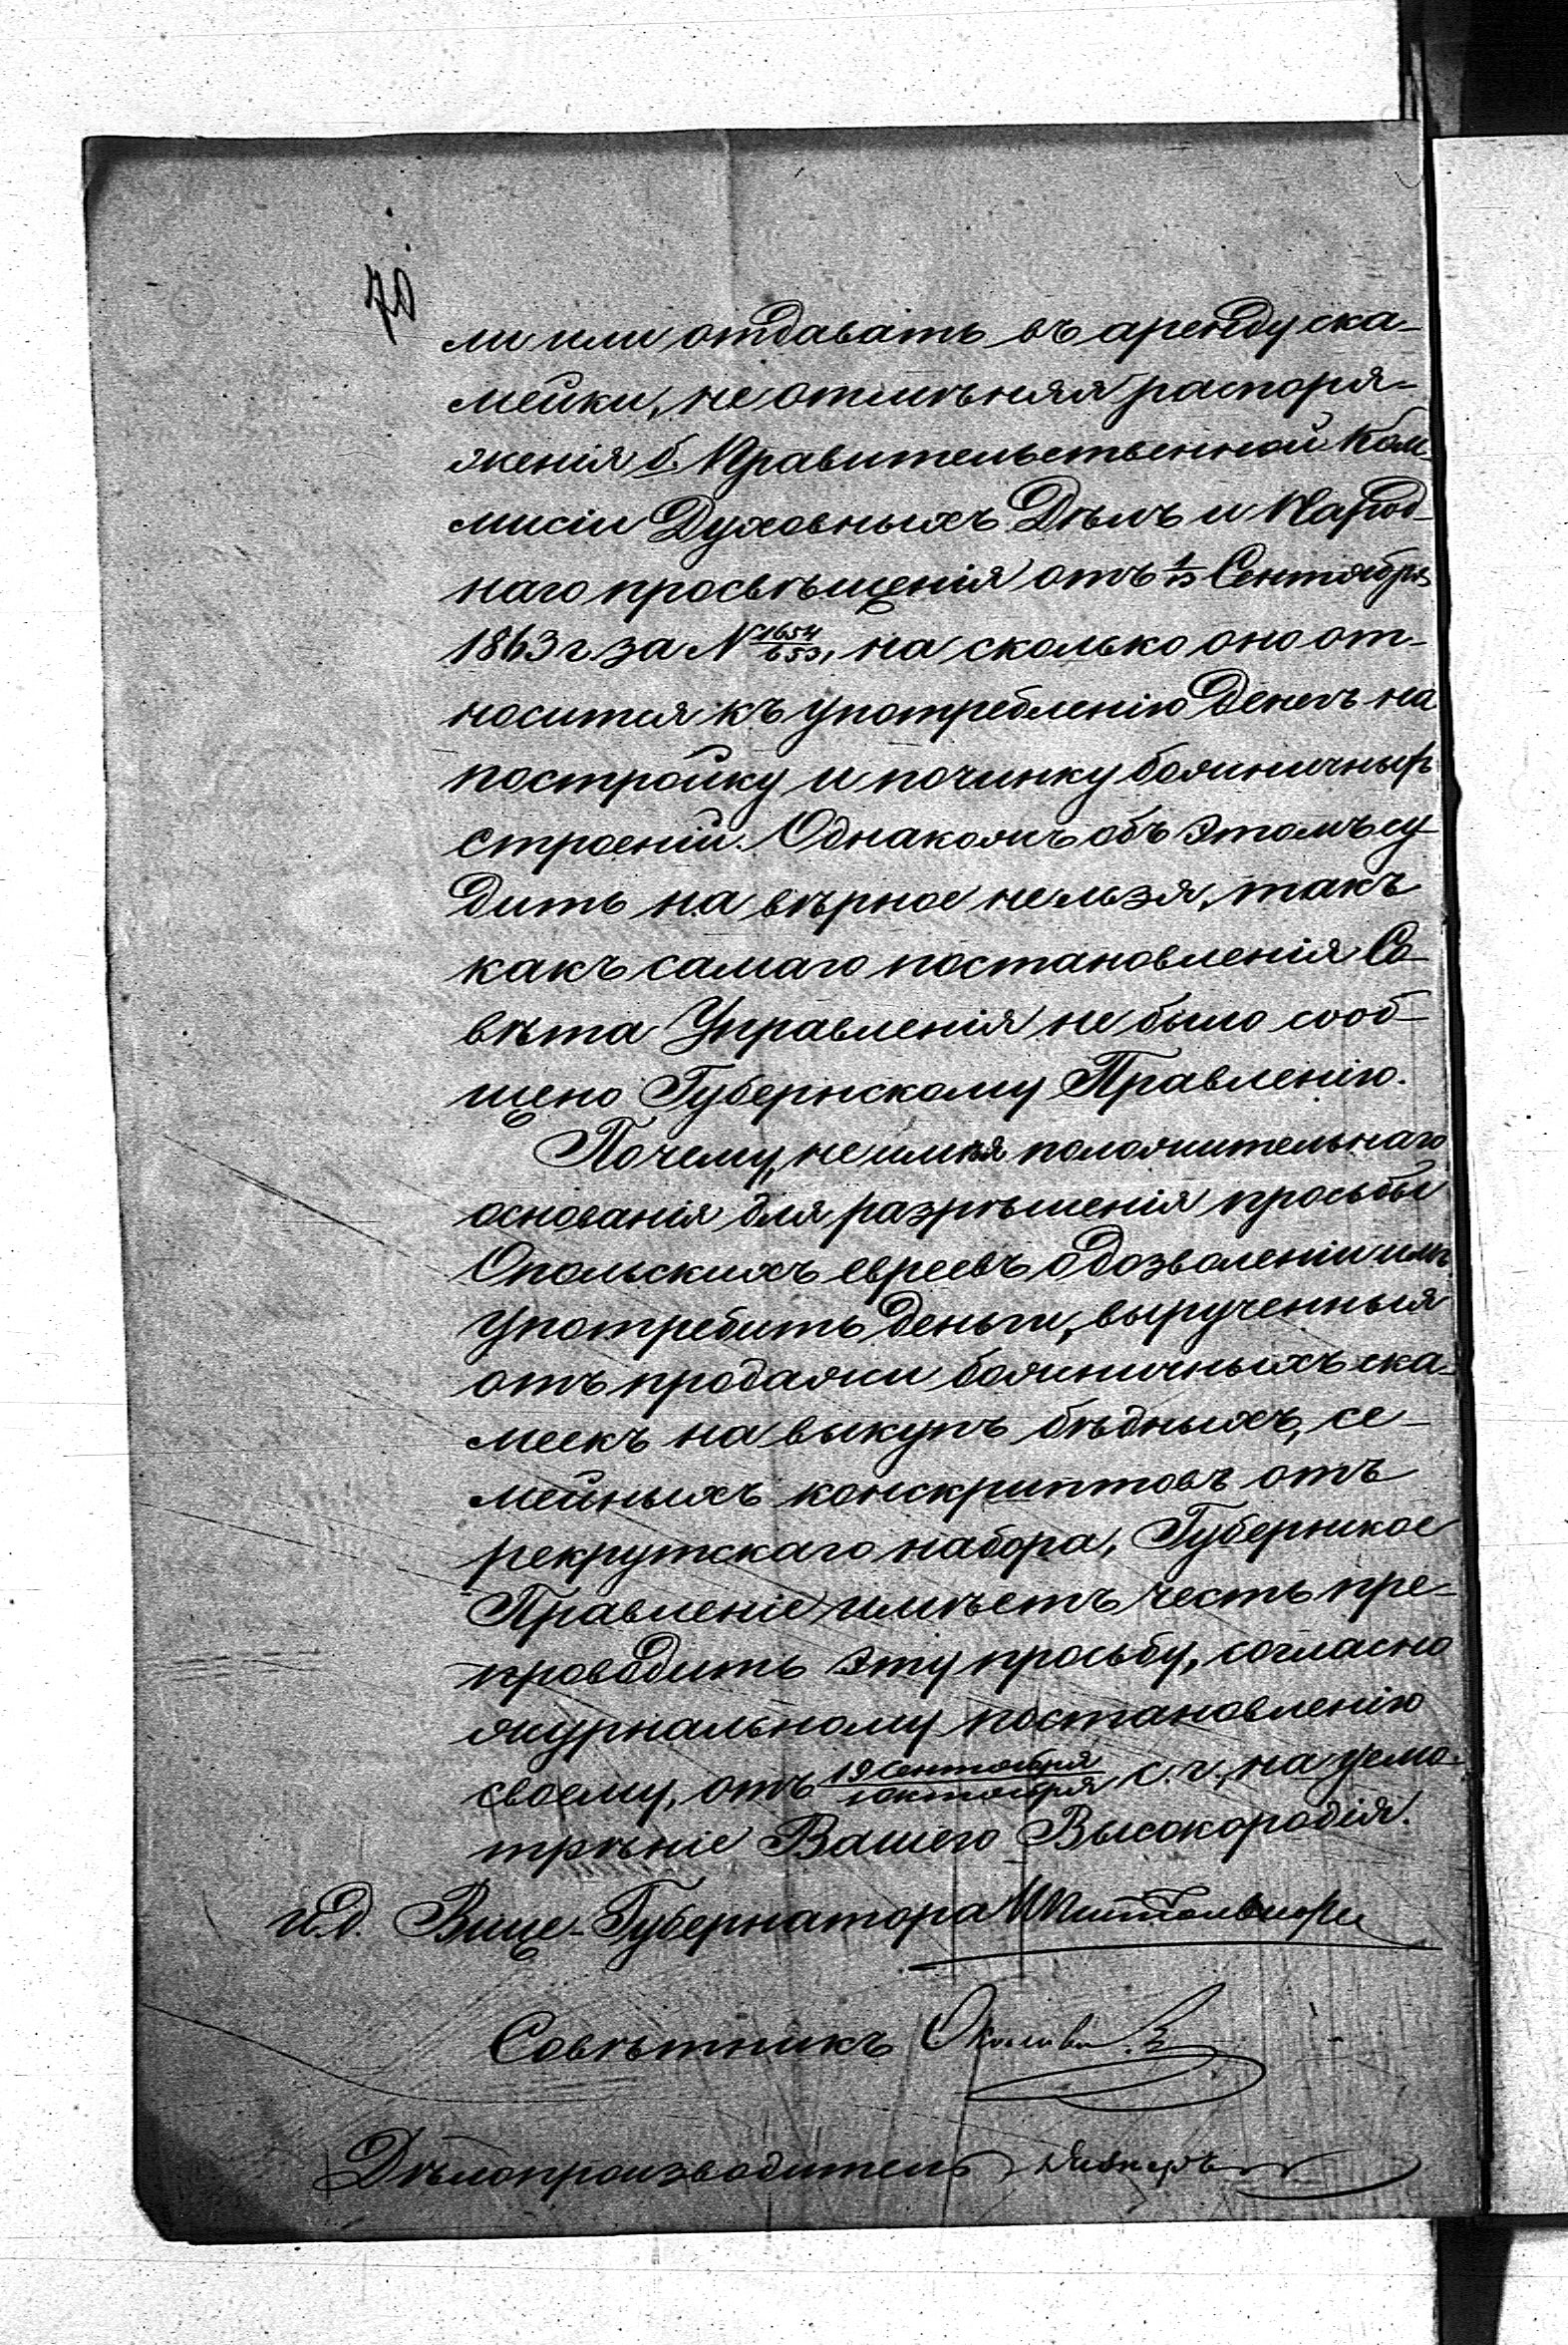 70
ли или отдавать въ аренду ска-
мейки, не отмѣняя распоря-
женія б. Правительственной Ком-
мисіи Духовныхъ Дѣлъ и Народ-
наго просвѣщенія отъ 1/13 Сентября
1863 г за N 1654/653, на сколько оно от-
носится къ употребленію денегъ на
постройку и починку божничныхъ
строеній. Однакожъ объ этомъ су-
дить на вѣрное нельзя, такъ
какъ самаго постановленія Со-
вѣта Управленія не было сооб-
щено Губернскому Правленію.
Почему, не имѣя положительнаго
основанія для разрѣшенія просьбы
Опольскихъ евреевъ о дозволеніи имъ
употребить деньги, вырученныя
отъ продажи божничныхъ ска-
меекъ на выкупъ бѣдныхъ, се-
мейныхъ конскриптовъ отъ
рекрутскаго набора, Губернское
Правленіе имѣетъ честь пре-
проводить эту просьбу, согласно
журнальному постановленію
своему, отъ 19 Сентября/1 Октября с. г., на усмо-
трѣніе Вашего Высокородія.
и. д. Вице-Губернатора
Совѣтникъ
Дѣлопроизводитель